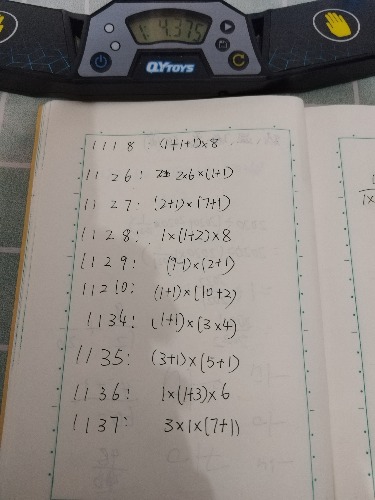 4.375
QYTOYS
1118: (1+1+1)×8
1126: 2×6×(1+1)
1127: (2+1)×(7+1)
1128: 1×(1+2)×8
1129: (9-1)×(2+1)
11210: (1+1)×(10+2)
1134: (1+1)×(3×4)
1135: (3+1)×(5+1)
1136: 1×(1+3)×6
1137: 3×1×(7+1)